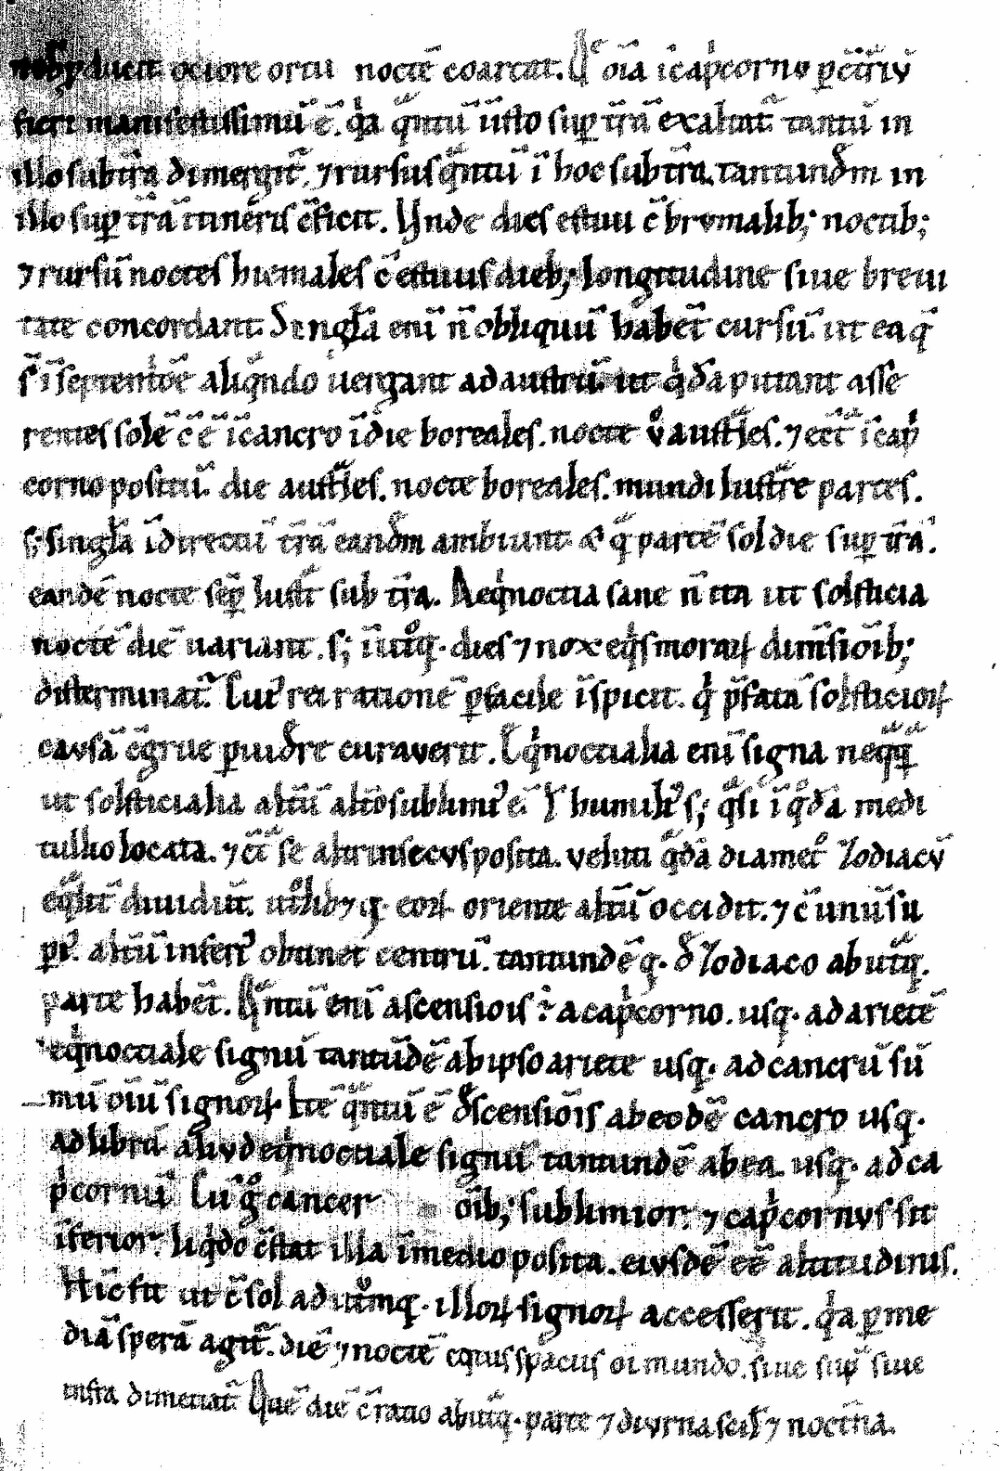 ducit ociore ortu noctē coartat. Q̄ oīa ī cap̄corno p̄ ctrariū
ficri manifestissimū ē. q̇a q̄ntū ī isto sup̄ t̄rā exaltat̄ tantū in
illo sub t̄rā dimergit̄. ⁊ rursus q̄ntū ī hoc sub t̄rā. tantundē in
illo sup̄ t̄rā itineris c̄ficit. Unde dies estiui c̄ brumalib; noctib;
⁊ rursū noctes hiemales c̄ estiuis dieb; longitudine siue breui
tate concordant. Singl̄a enī n̄ obliquū habēt cursū. ut ea q̄
s̄ ī septent̄oē aliq̄ndo uergant ad austrū. ut q̇dā putant asse
rentes solē c̄ ē ī cancro ī die boreales. nocte v̊ austl̄es. ⁊ ect̄ ī cap̄
corno positū. die austl̄es. nocte boreales. mundi lust̄re partes.
s; singl̄a ī directū t̄rā eandē ambiunt. & q̄ partē sol die sup̄ t̄rā.
eandē nocte sep̄ lust̄t sub t̄rā. Aeq̇noctia sane n̄ ita ut solsticia
noctē diē uariant. s; ī ut̊q;. dies ⁊ nox eq̇s moraꝝ dim̄sioīb;
disterminat̄. Cui᾽ rei rationē p̄facile īspicit. q̇ p̄fatā solsticioꝝ
cavsā c̄grue p̄uidēre curaverit. Eq̇noctialia enī signa neq̄q̄
ut solsticialia altū alt̊ sublimi᾽ ē. ł humili᾽ s; q̄si ī q̊dā medi
tullio locata. ⁊ ct̄ se altrinsecvs posita. veluti q̊dā diamet̊ Zodiacv̄
eq̄lit̄ diuidūt. ut̊lib; ⁊ q;. eoꝝ oriente altū occidit. ⁊ c̄ unū su
pi᾽. altū inferi᾽ obtinet centrū. tantundē q;. d̄ Zodiaco ab ut̄q;.
parte habēt. Q̄ntū enī ascensiois ē a cap̄corno. usq;. ad arietē
eq̇noctiale signū tantūdē ab ipso ariete usq;. ad cancrū sū
mū oīū signoꝝ. Itē q̄ntū ē d̄scensiōis ab eodē cancro usq;.
ad librā aliud eq̇noctiale signū tantundē ab ea. usq;. ad ca
p̄cornū. Cū g̊ cancer oīb; sublimior. ⁊ cap̄cornvs sit
īferior. liq̇do c̄stat illa ī medio posita. eivsdē eē altitudinis.
Hīc fit ut c̄ sol ad ut̊mq;. illoꝝ signoꝝ accesserit. q̇a p̄ me
diā sperā agit̄. diē ⁊ noctē equis spaciis oī mundo. siue sup̄ siue
infra dimetiat̄. Quē diē c̄ ratio ab ut̄q;. parte ⁊ divrna scił ⁊ noct̄na.